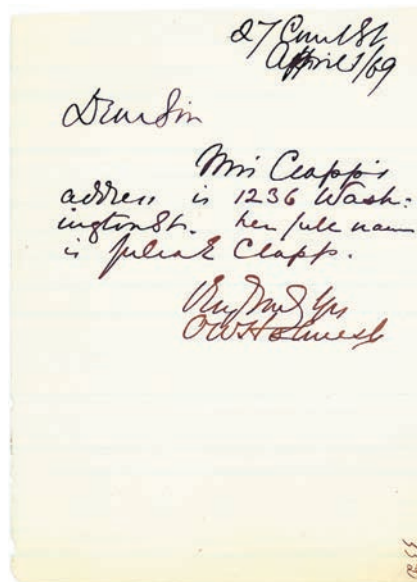 27 Court St
April 1/69
Dear Sir
Mrs Clapp's
address is 1236 Wash=
ington St. her full name
is Julia E Clapp.
Very Truly Yrs
O W Holmes Jr